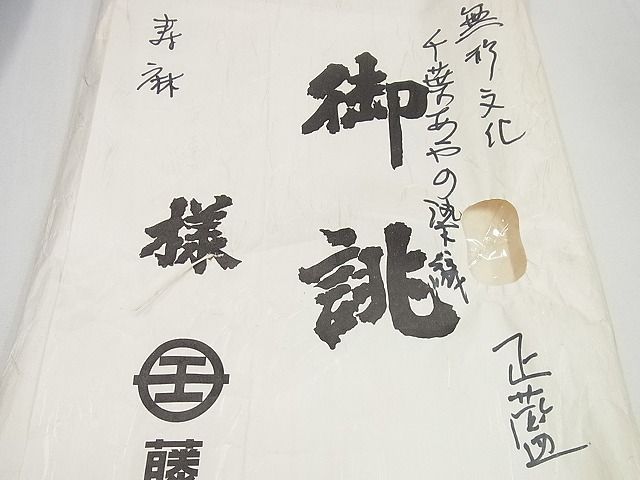 無形文化
千葉あやの染織
正藍
御誂
寿麻
様
藤